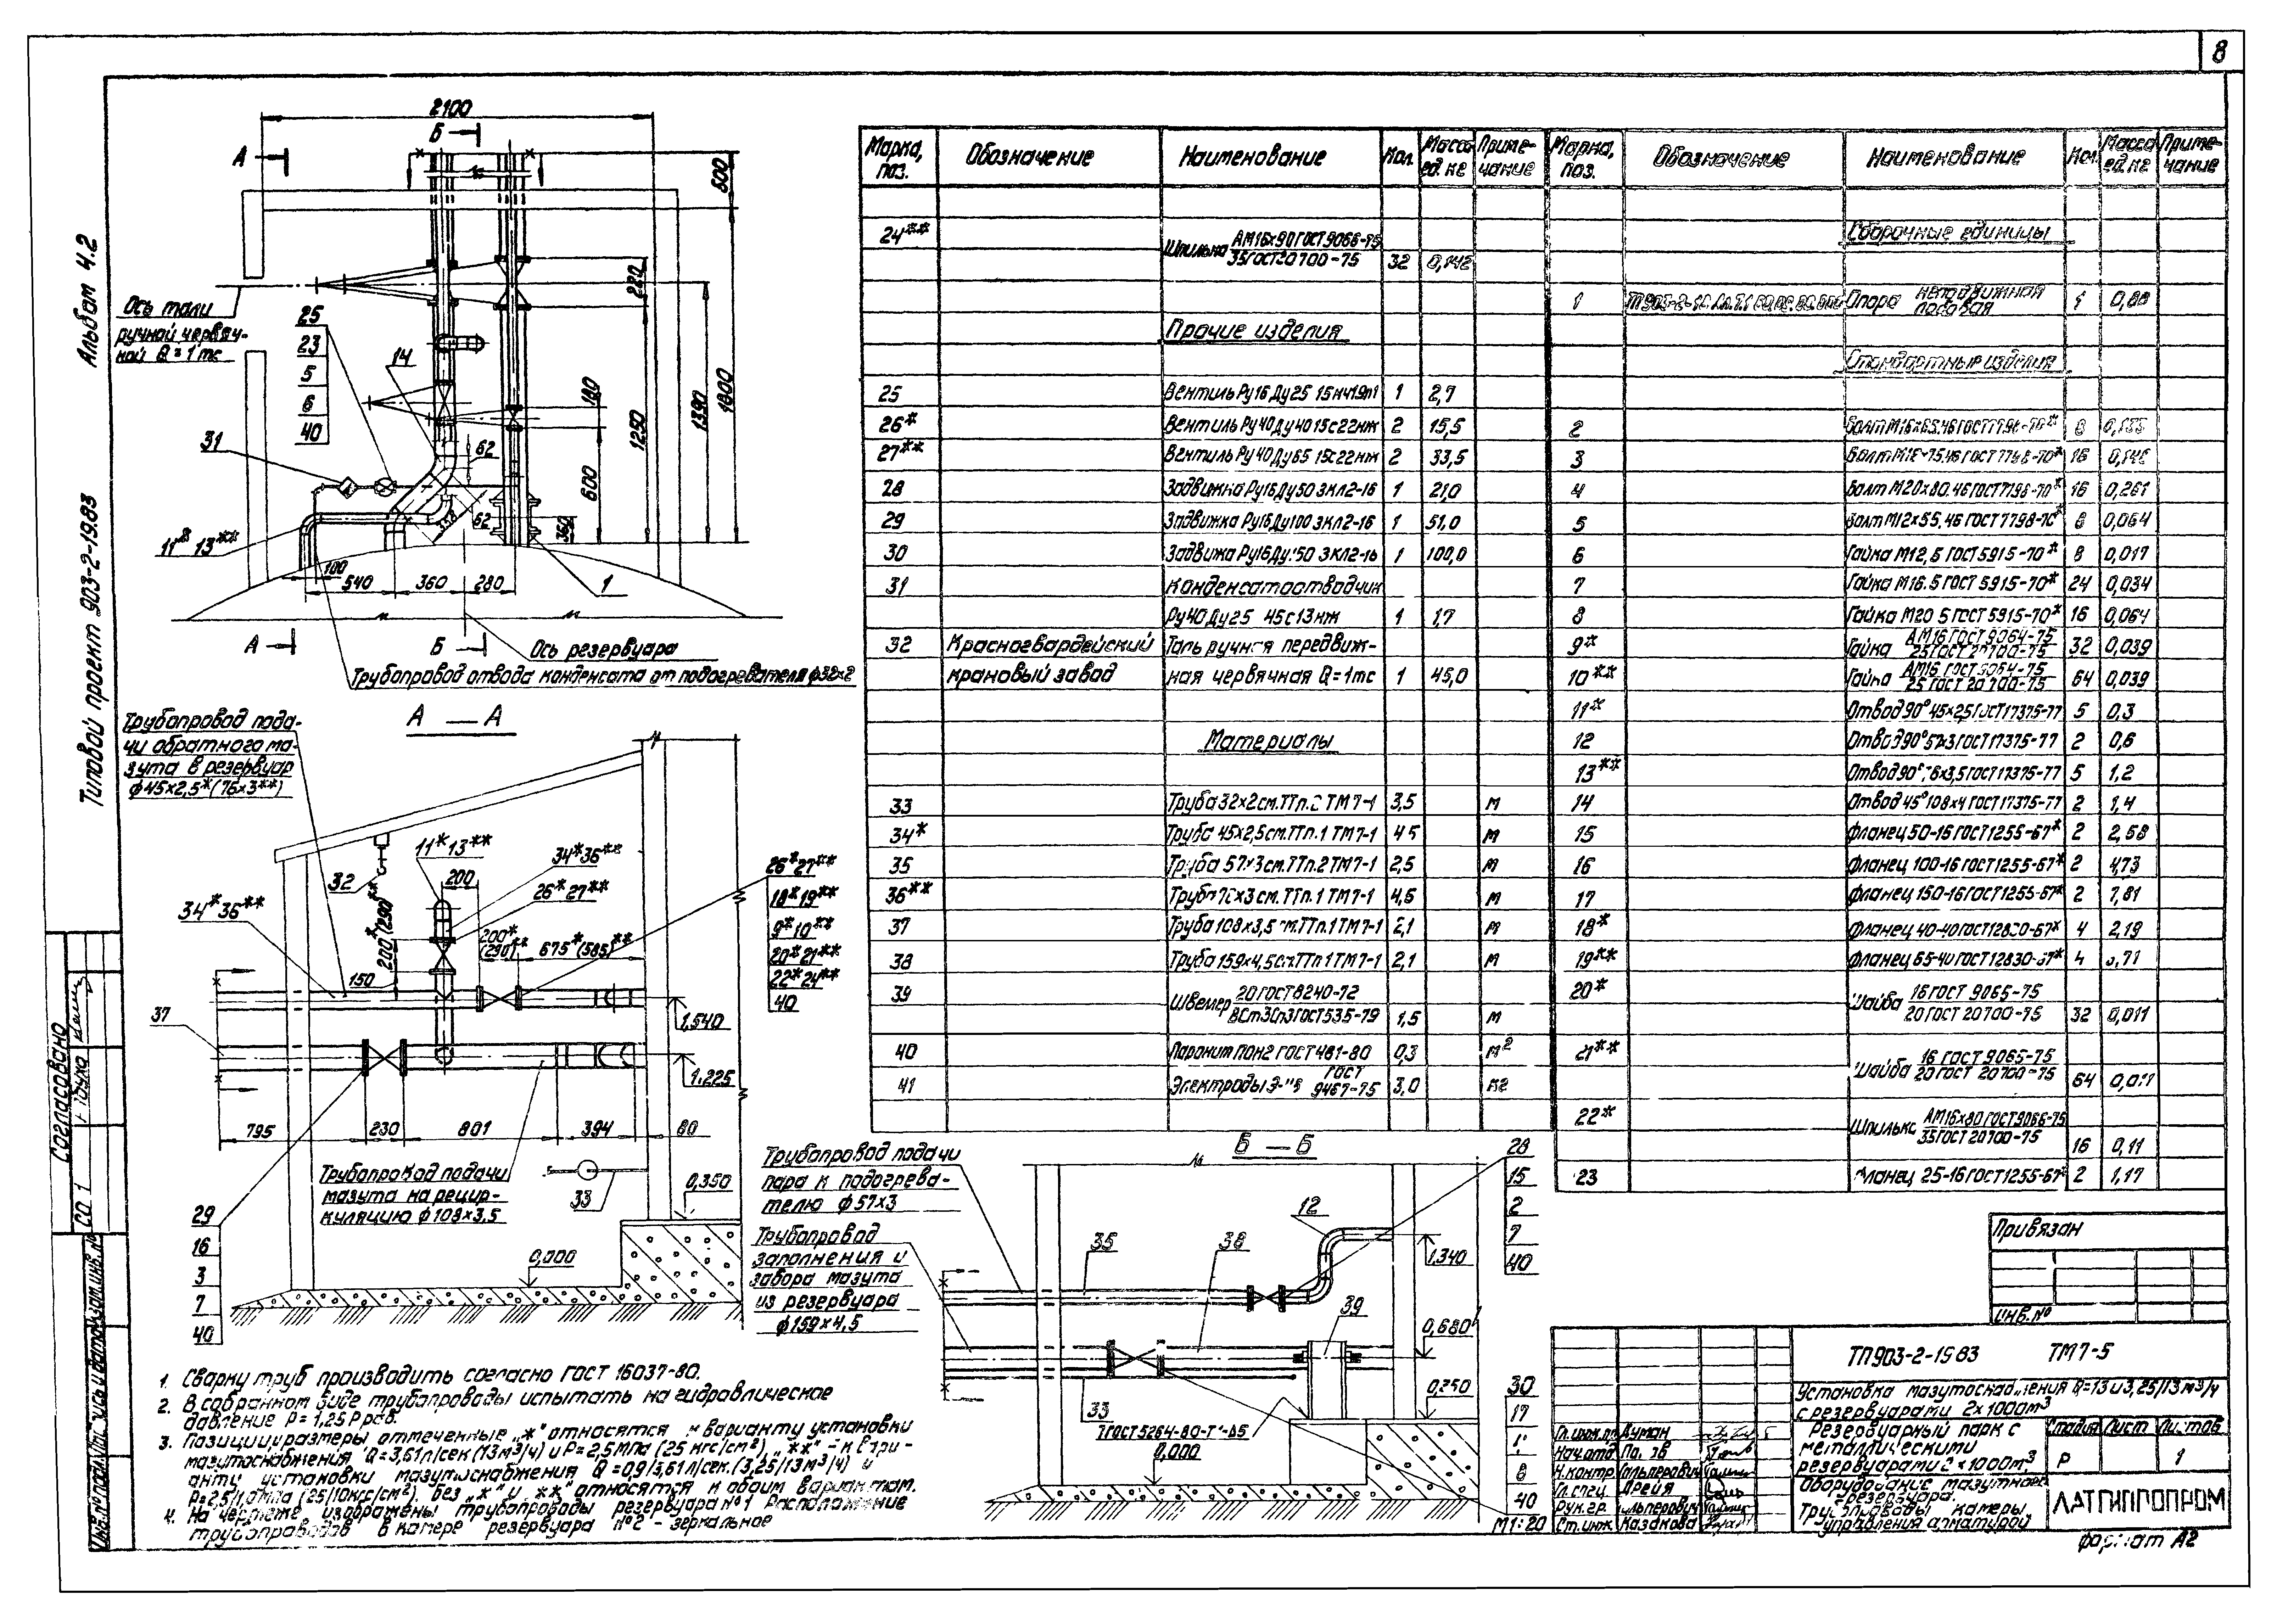 8
Альбом 4.2
Типовой проект 903-2-19.83
Согласовано
2100
Б
А
600
1800
1390
1250
220
180
600
62
62
358
360
100
540
360
280
Ось тали
ручной червяч-
ной Q=1тс
25
23
5
6
40
14
31
11* 13**
1
А
Б
Ось резервуара
Трубопровод отвода конденсата от подогревателя ф32х2
А — А
Трубопровод пода-
чи обратного ма-
зута в резервуар
ф45х2,5*(76х3**)
32
11*13**
34*36**
26*27**
200
200*(290)**
200*
(290)**
675*(585)**
150
34*36**
37
26*27**
18*19**
9*10**
20*21**
22*24**
40
1.540
1.225
795
230
801
394
80
Трубопровод подачи
мазута на рецир-
куляцию ф108х3,5
33
0,350
0,000
29
16
3
7
40
Б — Б
Трубопровод подачи
пара к подогрева-
телю ф57х3
Трубопровод
заполнения и
забора мазута
из резервуара
ф159х4,5
35
38
12
39
33
28
15
2
7
40
1.340
0,680
0,250
0,000
30
17
8
40
М1:20
Марка, поз. Обозначение Наименование Кол. Масса ед. кг Приме-чание
24** Шпилька АМ16х90 ГОСТ 9066-75 / 35 ГОСТ 20700-75 32 0,142
Прочие изделия
25 Вентиль Ру16 Ду25 15кч19п1 1 2,7
26* Вентиль Ру40 Ду40 15с22нж 2 15,5
27** Вентиль Ру40 Ду65 15с22нж 2 33,5
28 Задвижка Ру16 Ду50 ЗКЛ2-16 1 21,0
29 Задвижка Ру16 Ду100 ЗКЛ2-16 1 51,0
30 Задвижа Ру16 Ду150 ЗКЛ2-16 1 100,0
31 Конденсатоотводчик
Ру40 Ду25 45с13нж 1 1,7
32 Красногвардейский Таль ручная передвиж-
крановый завод ная червячная Q=1тс 1 45,0
Материалы
33 Труба 32х2 см.ТТп.2 ТМ7-1 3,5 м
34* Труба 45х2,5 см.ТТп.1 ТМ7-1 4,5 м
35 Труба 57х3 см.ТТп.2 ТМ7-1 2,5 м
36** Труба 76х3 см.ТТп.1 ТМ7-1 4,5 м
37 Труба 108х3,5 см.ТТп.1 ТМ7-1 2,1 м
38 Труба 159х4,5 см.ТТп.1 ТМ7-1 2,1 м
39 Швеллер 20 ГОСТ 8240-72 / ВСт3Сп3 ГОСТ 535-79 1,5 м
40 Паронит ПОН2 ГОСТ 481-80 0,3 м²
41 Электроды ГОСТ 9467-75 3,0 кг
Марка, поз. Обозначение Наименование Кол. Масса ед. кг Приме-чание
Сборочные единицы
1 Опора неподвижная 1 0,88
Стандартные изделия
2 Болт М16х65.46 ГОСТ 7798-70* 8
3 Болт М16х75.46 ГОСТ 7798-70* 16
4 Болт М20х80.46 ГОСТ 7798-70* 16 0,261
5 Болт М12х55.46 ГОСТ 7798-70* 8 0,064
6 Гайка М12.5 ГОСТ 5915-70* 8 0,017
7 Гайка М16.5 ГОСТ 5915-70* 24 0,034
8 Гайка М20 5 ГОСТ 5915-70* 16 0,064
9* Гайка АМ16 ГОСТ 9064-75 / 25 ГОСТ 20700-75 32 0,039
10** Гайка АМ16 ГОСТ 9064-75 / 25 ГОСТ 20700-75 64 0,039
11* Отвод 90° 45х2,5 ГОСТ 17375-77 5 0,3
12 Отвод 90° 57х3 ГОСТ 17375-77 2 0,6
13** Отвод 90° 76х3,5 ГОСТ 17375-77 5 1,2
14 Отвод 45° 108х4 ГОСТ 17375-77 2 1,4
15 Фланец 50-16 ГОСТ 1255-67* 2 2,58
16 Фланец 100-16 ГОСТ 1255-67* 2 4,73
17 Фланец 150-16 ГОСТ 1255-67* 2 7,81
18* Фланец 40-40 ГОСТ 12830-67* 4 2,19
19** Фланец 65-40 ГОСТ 12830-67* 4
20* Шайба 16 ГОСТ 9065-75 / 20 ГОСТ 20700-75 32 0,011
21** Шайба 16 ГОСТ 9065-75 / 20 ГОСТ 20700-75 64 0,011
22* Шпилька АМ16х80 ГОСТ 9066-75 / 35 ГОСТ 20700-75 16 0,11
23 Фланец 25-16 ГОСТ 1255-67* 2 1,17
1. Сварку труб производить согласно ГОСТ 16037-80.
2. В собранном виде трубопроводы испытать на гидравлическое
давление Р=1,25 Рраб.
3. Позиции и размеры отмеченные „*" относятся к варианту установки
мазутоснабжения Q=3,61л/сек (13м³/ч) и Р=2,5мПа (25 кгс/см²), „**"-к вари-
анту установки мазутоснабжения Q=0,9/3,61л/сек.(3,25/13м³/ч) и
Р=2,5/1,0мПа (25/10кгс/см²), без „*" и „**" относятся к обоим вариантам.
4. На чертеже изображены трубопроводы резервуара №1 Расположение
трубопроводов в камере резервуара №2 - зеркальное
Привязан
Инв.№
ТП 903-2-19.83 ТМ7-5
Установка мазутоснабжения Q=13 и 3,25/13 м³/ч
с резервуарами 2х1000м³
Резервуарный парк с
металлическими
резервуарами 2х1000м³
Стадия Лист Листов
Р 1
Оборудование мазутного
резервуара.
Трубопроводы камеры
управления арматурой
ЛАТГИПРОПРОМ
Гл.инж.пр. Думан
Нач.отд.
Н.контр. Гальперович
Гл.спец. Дрейя
Рук.гр. Гальперович
Ст.инж. Казакова
Формат А2